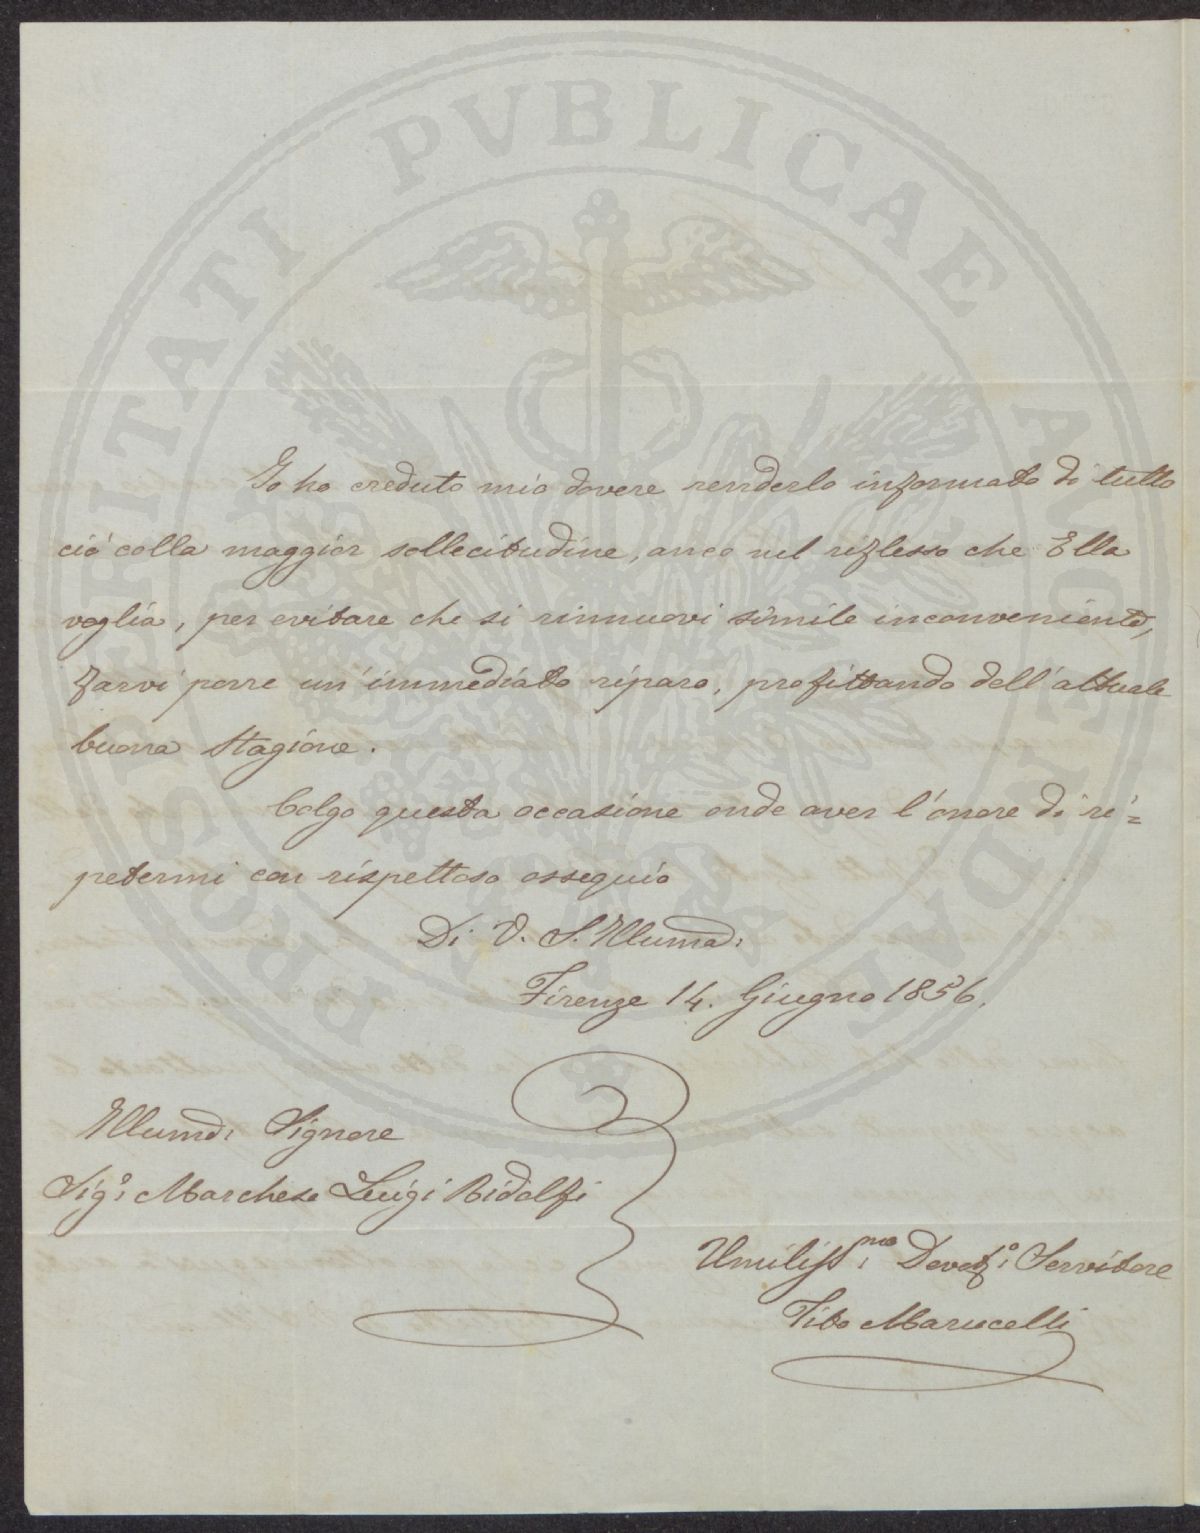 PROSPERITATI PVBLICAE AVGENDAE
Io ho creduto mio dovere renderlo informato di tutto
ciò colla maggior sollecitudine, anco nel riflesso che Ella
voglia, per evitare che si rinnuovi simile inconveniente,
farvi porre un'immediato riparo, profittando dell'attuale
buona Stagione.
Colgo questa occasione onde aver l'onore di ri=
petermi con rispettoso ossequio
Di V. S. Illuma:
Firenze 14. Giugno 1856.
Illumo: Signore
Sigo: Marchese Luigi Ridolfi
Umilissmo: Devoto: Servitore
Tito Marucelli